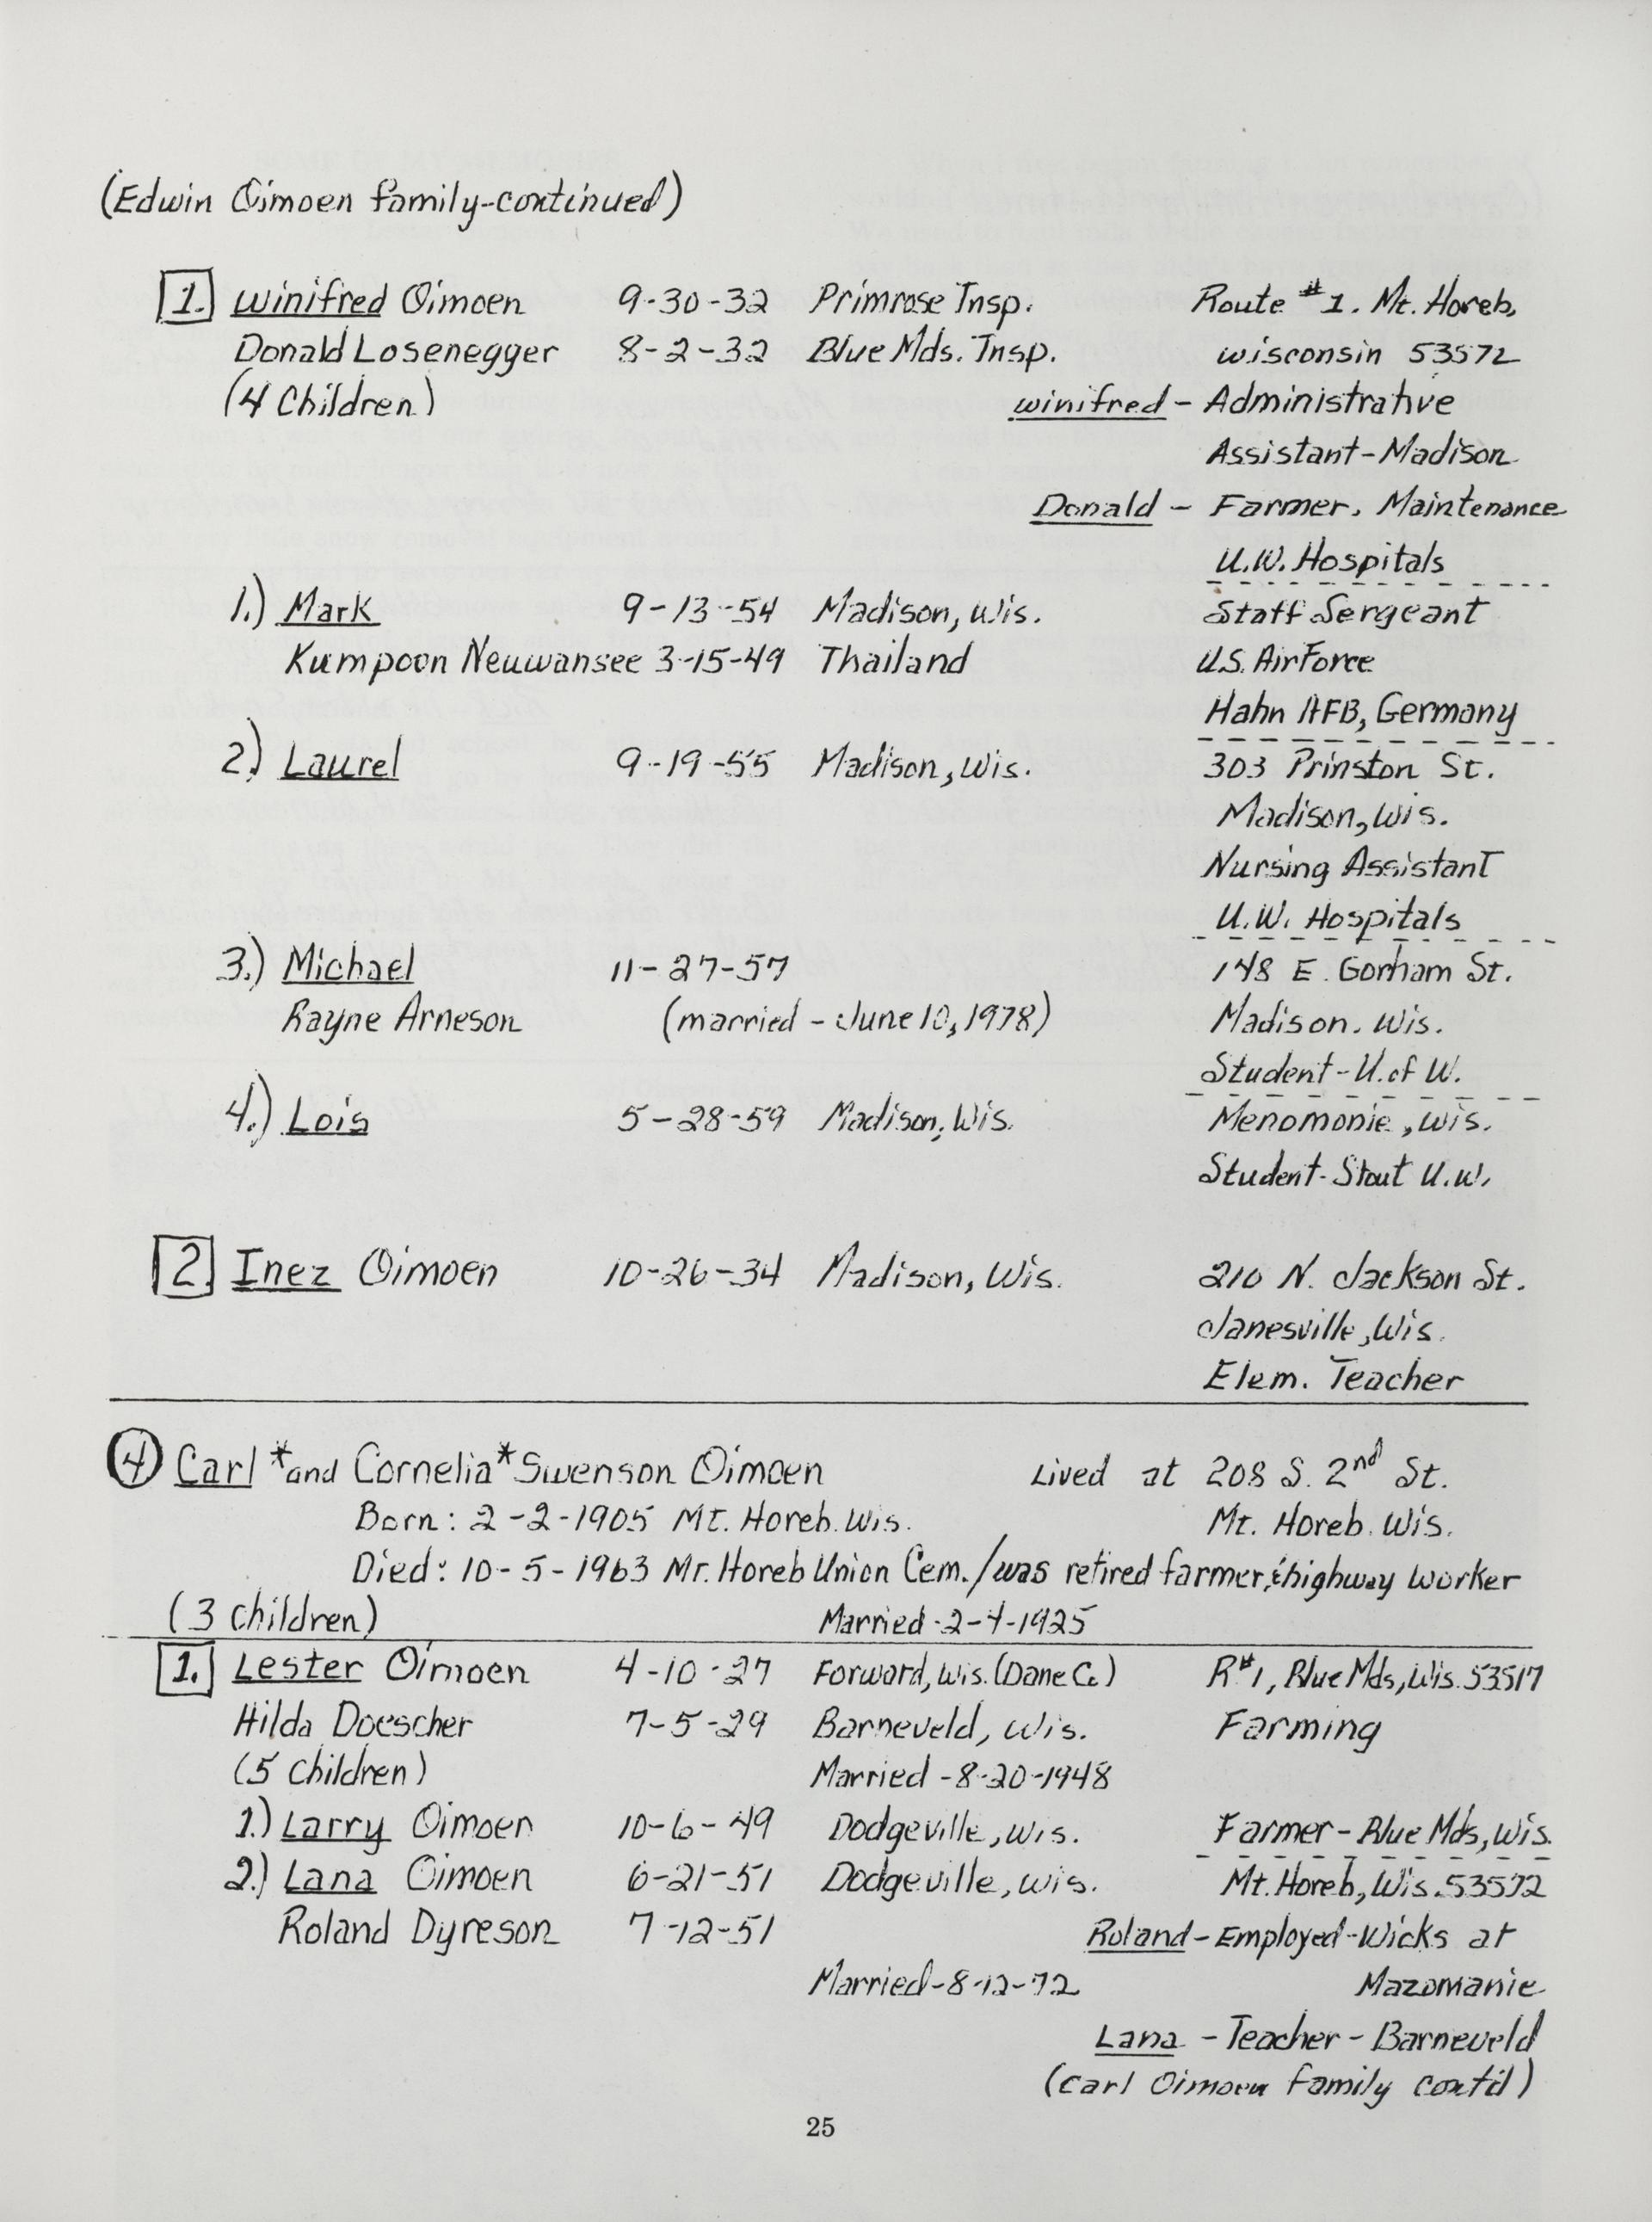 (Edwin Oimoen family-continued)
1. Winifred Oimoen 9-30-32 Primrose Tnsp. Route #1. Mt. Horeb,
Donald Losenegger 8-2-32 Blue Mds. Tnsp. Wisconsin 53572
(4 Children) Winifred - Administrative
Assistant-Madison
Donald - Farmer. Maintenance
U.W. Hospitals
1.) Mark 9-13-54 Madison, Wis. Staff Sergeant
Kumpoon Neuwansee 3-15-49 Thailand U.S. AirForce
Hahn AFB, Germany
2.) Laurel 9-19-55 Madison, Wis. 303 Prinston St.
Madison, Wis.
Nursing Assistant
U.W. Hospitals
3.) Michael 11-27-57 148 E. Gorham St.
Rayne Arneson (married - June 10, 1978) Madison. Wis.
Student-U. of W.
4.) Lois 5-28-59 Madison, Wis. Menomonie, Wis.
Student-Stout U.W.
2. Inez Oimoen 10-26-34 Madison, Wis. 210 N. Jackson St.
Janesville, Wis.
Elem. Teacher
4 Carl * and Cornelia * Swenson Oimoen Lived at 208 S. 2nd St.
Born: 2-2-1905 Mt. Horeb. Wis. Mt. Horeb. Wis.
Died: 10-5-1963 Mt. Horeb Union Cem./was retired farmer, & highway worker
(3 children) Married-2-4-1925
1. Lester Oimoen 4-10-27 Forward, Wis. (Dane Co.) R#1, Blue Mds, Wis. 53517
Hilda Doescher 7-5-29 Barneveld, Wis. Farming
(5 Children) Married-8-20-1948
1.) Larry Oimoen 10-6-49 Dodgeville, Wis. Farmer-Blue Mds, Wis.
2.) Lana Oimoen 6-21-51 Dodgeville, Wis. Mt. Horeb, Wis. 53572
Roland Dyreson 7-12-51 Roland-Employed-Wicks at
Married-8-12-72 Mazomanie
Lana - Teacher - Barneveld
(Carl Oimoen family cont'd)
25